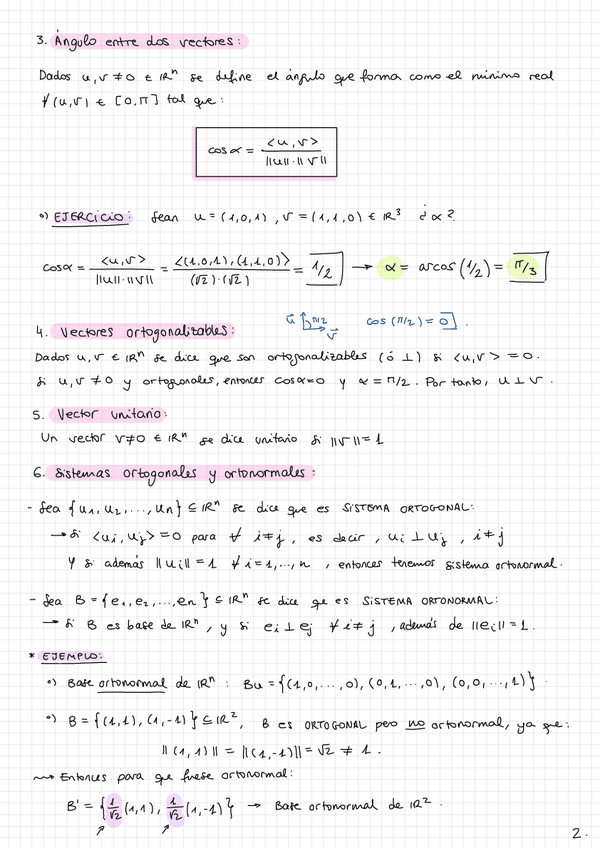 3. Ángulo entre dos vectores:
Dados u, v ≠ 0 ∈ ℝⁿ se define el ángulo que forma como el mínimo real
∢(u,v) ∈ [0,π] tal que:
cos α = <u,v> / ||u||·||v||
°) EJERCICIO: Sean u = (1,0,1), v = (1,1,0) ∈ ℝ³ ¿α?
cos α = <u,v> / ||u||·||v|| = <(1,0,1),(1,1,0)> / (√2)·(√2) = 1/2 → α = arcos (1/2) = π/3
4. Vectores ortogonalizables: u⃗ π/2 v⃗ cos (π/2) = 0
Dados u, v ∈ ℝⁿ se dice que son ortogonalizables (ó ⊥) si <u,v> = 0.
Si u, v ≠ 0 y ortogonales, entonces cos α = 0 y α = π/2. Por tanto, u ⊥ v.
5. Vector unitario:
Un vector v ≠ 0 ∈ ℝⁿ se dice unitario si ||v|| = 1
6. Sistemas ortogonales y ortonormales:
- Sea {u₁, u₂, ..., uₙ} ⊆ ℝⁿ se dice que es SISTEMA ORTOGONAL:
→ Si <uᵢ, uⱼ> = 0 para ∀ i ≠ j, es decir, uᵢ ⊥ uⱼ, i ≠ j
Y si además ||uᵢ|| = 1 ∀ i = 1, ..., n, entonces tenemos sistema ortonormal.
- Sea B = {e₁, e₂, ..., eₙ} ⊆ ℝⁿ se dice qe es SISTEMA ORTONORMAL:
→ Si B es base de ℝⁿ, y si eᵢ ⊥ eⱼ ∀ i ≠ j, además de ||eᵢ|| = 1.
* EJEMPLO:
°) Base ortonormal de ℝⁿ: Bu = {(1,0,...,0), (0,1,...,0), (0,0,...,1)}.
°) B = {(1,1), (1,-1)} ⊆ ℝ², B es ORTOGONAL pero no ortonormal, ya que:
||(1,1)|| = ||(1,-1)|| = √2 ≠ 1.
⇝ Entonces para que fuese ortonormal:
B' = {1/√2 (1,1), 1/√2 (1,-1)} → Base ortonormal de ℝ².
2.